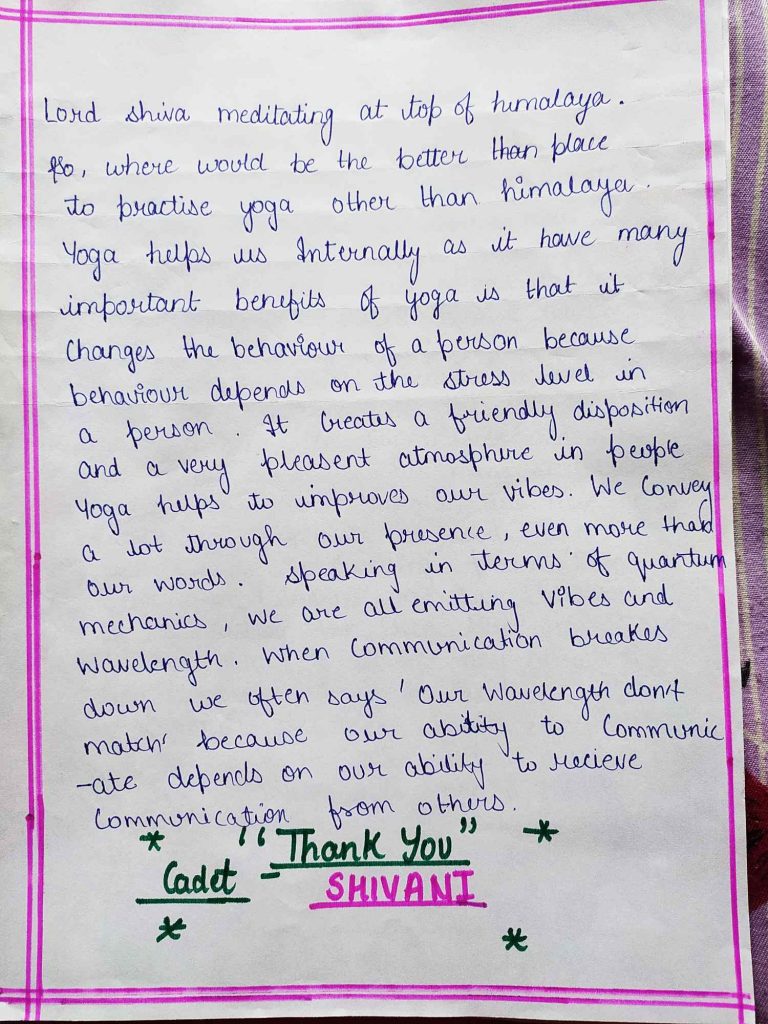 Lord shiva meditating at top of himalaya.
So, where would be the better than place
to practise yoga other than himalaya.
Yoga helps us Internally as it have many
important benefits of yoga is that it
Changes the behaviour of a person because
behaviour depends on the stress level in
a person. It Creates a friendly disposition
and a very pleasent atmosphire in people
Yoga helps to improves our vibes. We Convey
a lot through our presence, even more than
our words. Speaking in terms of quantum
mechanics, we are all emitting Vibes and
Wavelength. When Communication breakes
down we often says 'Our Wavelength don't
match' because our ability to Communic
-ate depends on our ability to recieve
Communication from others.
"Thank You"
Cadet - SHIVANI